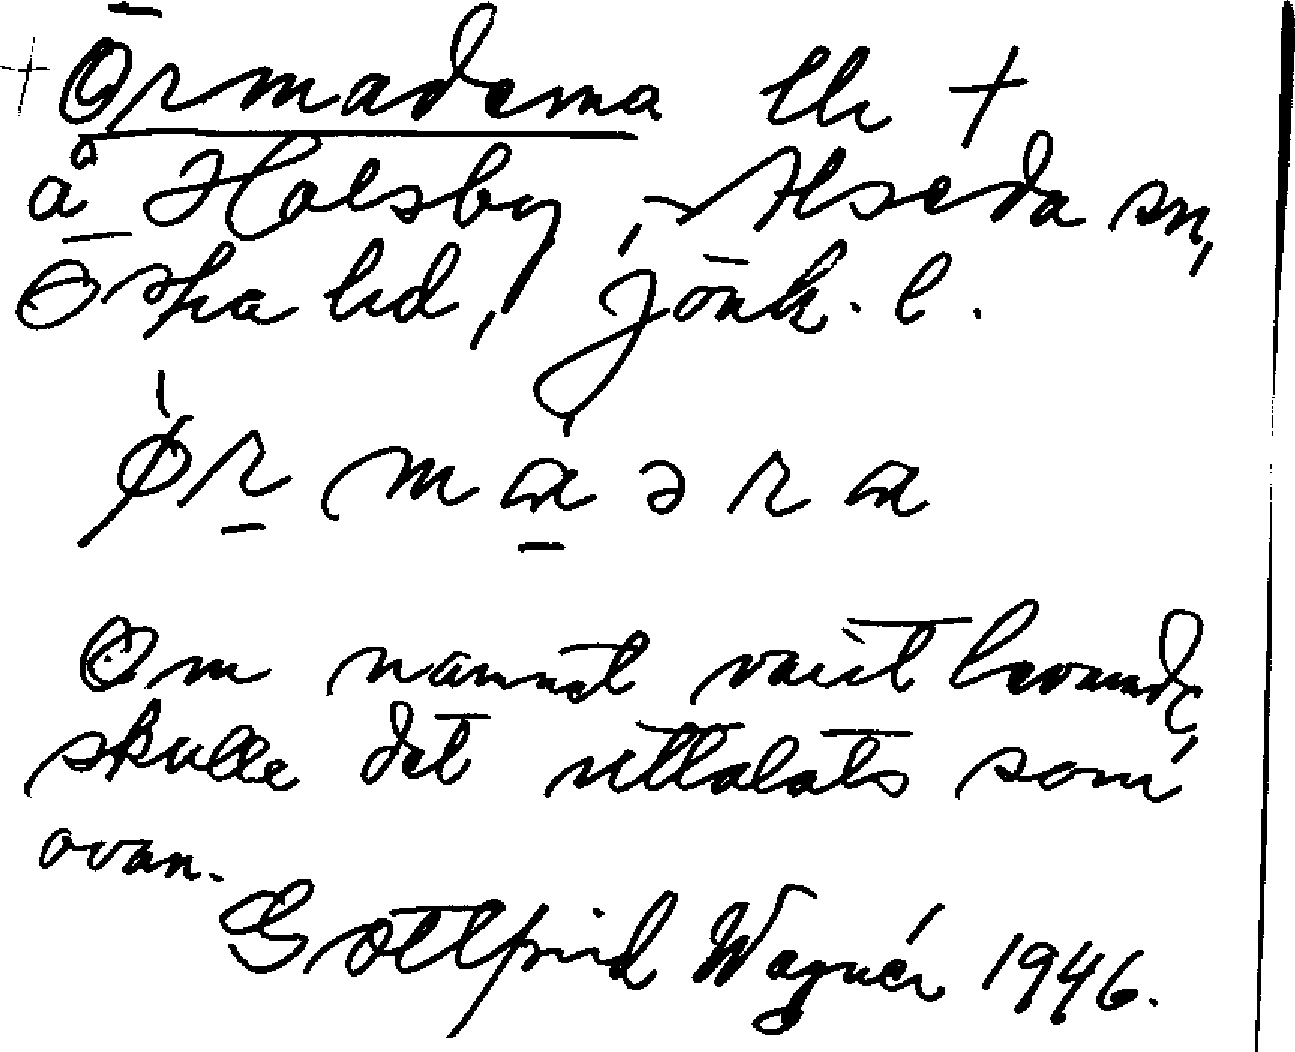 + Örmadema lh +
å Holsby, Alseda sn,
Östra hd, Jönk. l.
ørmaəra
Om namnet varit levande,
skulle det uttalats som
ovan.
Gottfrid Wagnér 1946.